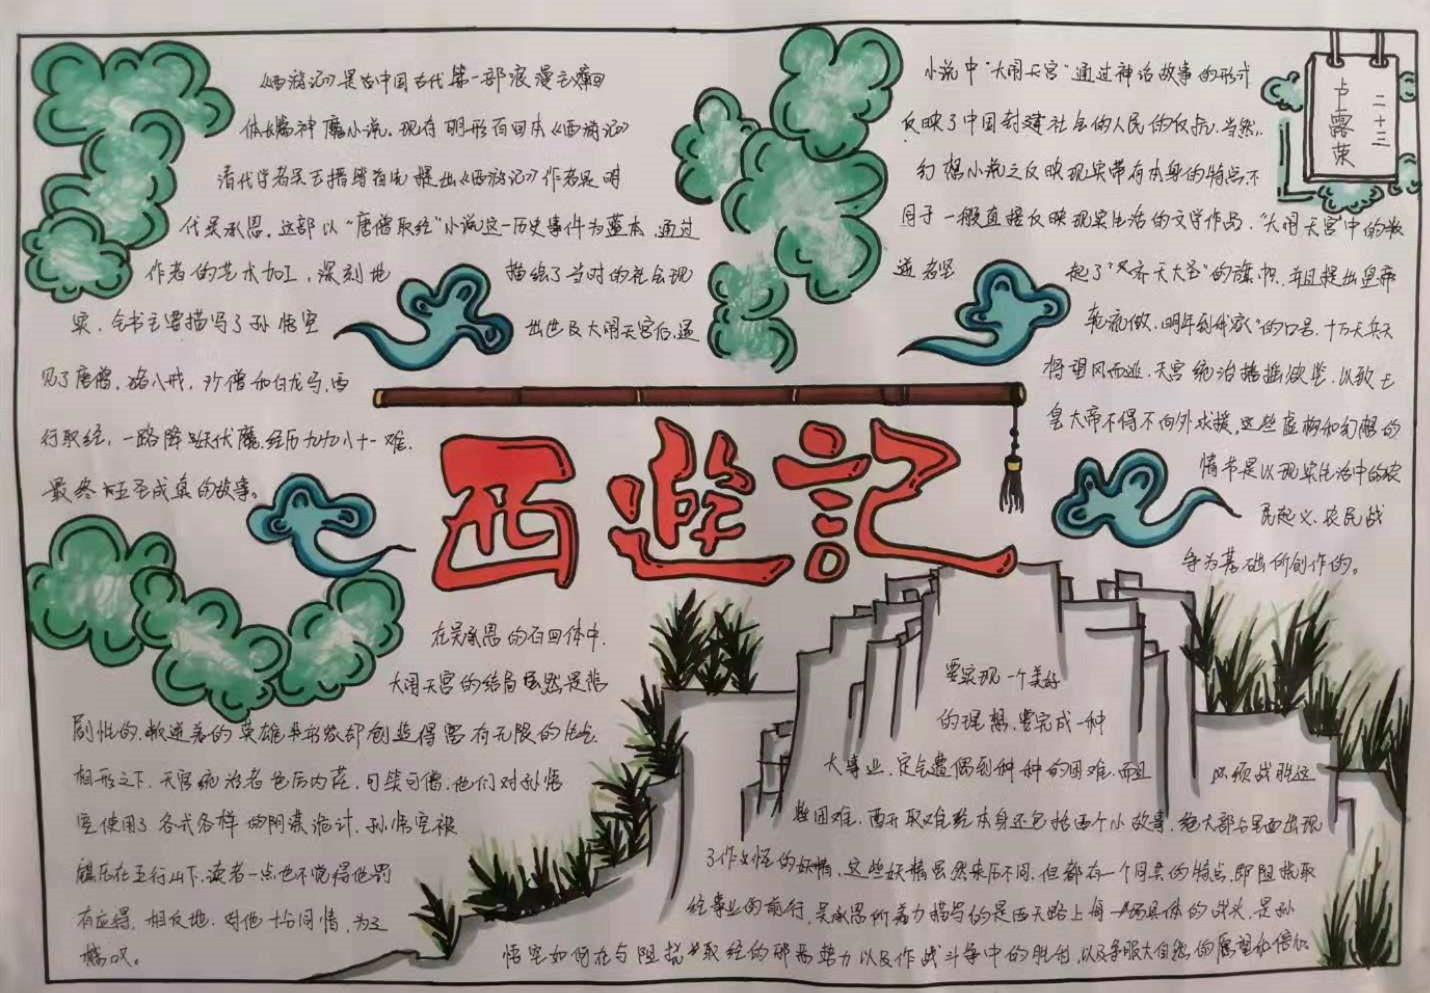 《西游记》是古中国古代第一部浪漫主义章回
体长篇神魔小说。现存明刊百回本《西游记》
清代学者吴玉搢曾首先提出《西游记》作者是明
代吴承恩。这部以“唐僧取经”小说这一历史事件为蓝本，通过
作者的艺术加工，深刻地描绘了当时的社会现
实。全书主要描写了孙悟空出世及大闹天宫后，遇
见了唐僧，猪八戒，沙僧和白龙马，西
行取经，一路降妖伏魔，经历九九八十一难，
最终五圣成真的故事。
小说中“大闹天宫”通过神话故事的形式
反映了中国封建社会的人民的反抗，当然，
幻想小说之反映现实带有本身的特点，不
同于一般直接反映现实生活的文学作品，“大闹天宫”中的叛
逆者竖起了“齐天大圣”的旗帜，并且提出皇帝
轮流做，明年到我家”的口号，十万天兵天
将望风而逃，天宫统治摇摇欲坠，以致玉
皇大帝不得不向外求援，这些虚构和幻想的
情节是以现实生活中的农
民起义、农民战
争为基础所创作的。
卢露荣
二十三
西遊記
在吴承恩的百回体中，
大闹天宫的结局虽然是悲
剧性的，叛逆者的英雄却创造得富有无限的
相形之下，天宫统治者色厉内荏，可笑可憎，他们对孙悟
空使用了各式各样的阴谋诡计，孙悟空被
镇压在五行山下，读者一点也不觉得他罪
有应得，相反地，对他十分同情，为之
慨叹。
要实现一个美好
的理想，要完成一种
大事业，定会遭遇到种种的困难，而且必须战胜这
些困难，西天取经本身还包括两个小故事，绝大部分里面出现
了作义怪的妖精，这些妖精虽然来历不同，但都有一个同类的特点，即阻挠取
经事业的前行，吴承恩所着力描写的是西天路上每一场具体的战火，是孙
悟空如何在与阻挠取经的邪恶势力以及作战斗争中的胜利，以及争服大自然的愿望和信心